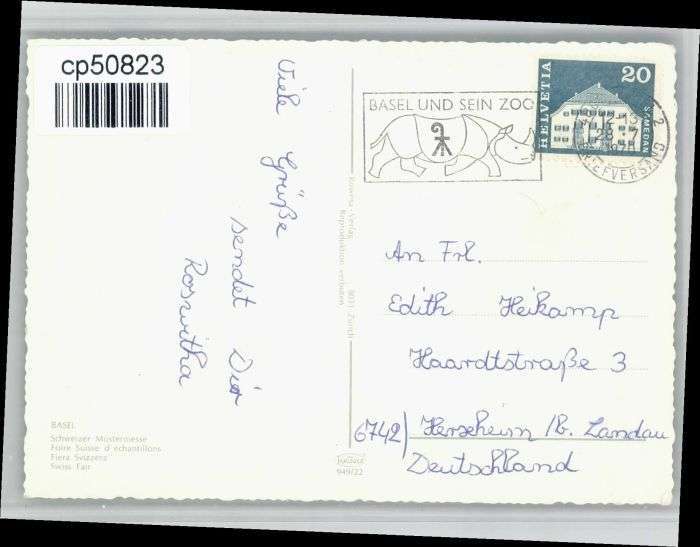 cp50823
Viele Grüße
sendet Dir
Roswitha
BASEL
Schweizer Mustermesse
Foire Suisse d'échantillons
Fiera Svizzera
Swiss Fair
Verlag 8031 Zürich
Reproduktion verboten
949/22
BASEL UND SEIN ZOO
HELVETIA
20
BRIEFVERSAND
2
An Frl.
Edith Heikamp
Haardtstraße 3
6742) Herxheim /b. Landau
Deutschland